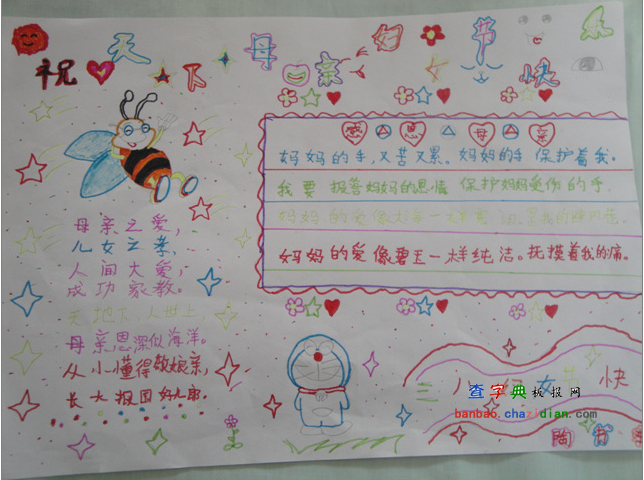 祝天下母亲妇女节快乐
感恩母亲
妈妈的手,又苦又累。妈妈的手保护着我。
我要报答妈妈的恩情 保护妈妈受伤的手.
妈妈的爱像大海一样宽
妈妈的爱像碧玉一样纯洁。抚摸着我的痛.
母亲之爱,
儿女之孝,
人间大爱,
成功家教。
天地下人世上,
母亲恩深似海洋。
从小懂得敬娘亲,
长大报国好儿郎.
三八妇女 快
查字典板报网
banbao.chazidian.com